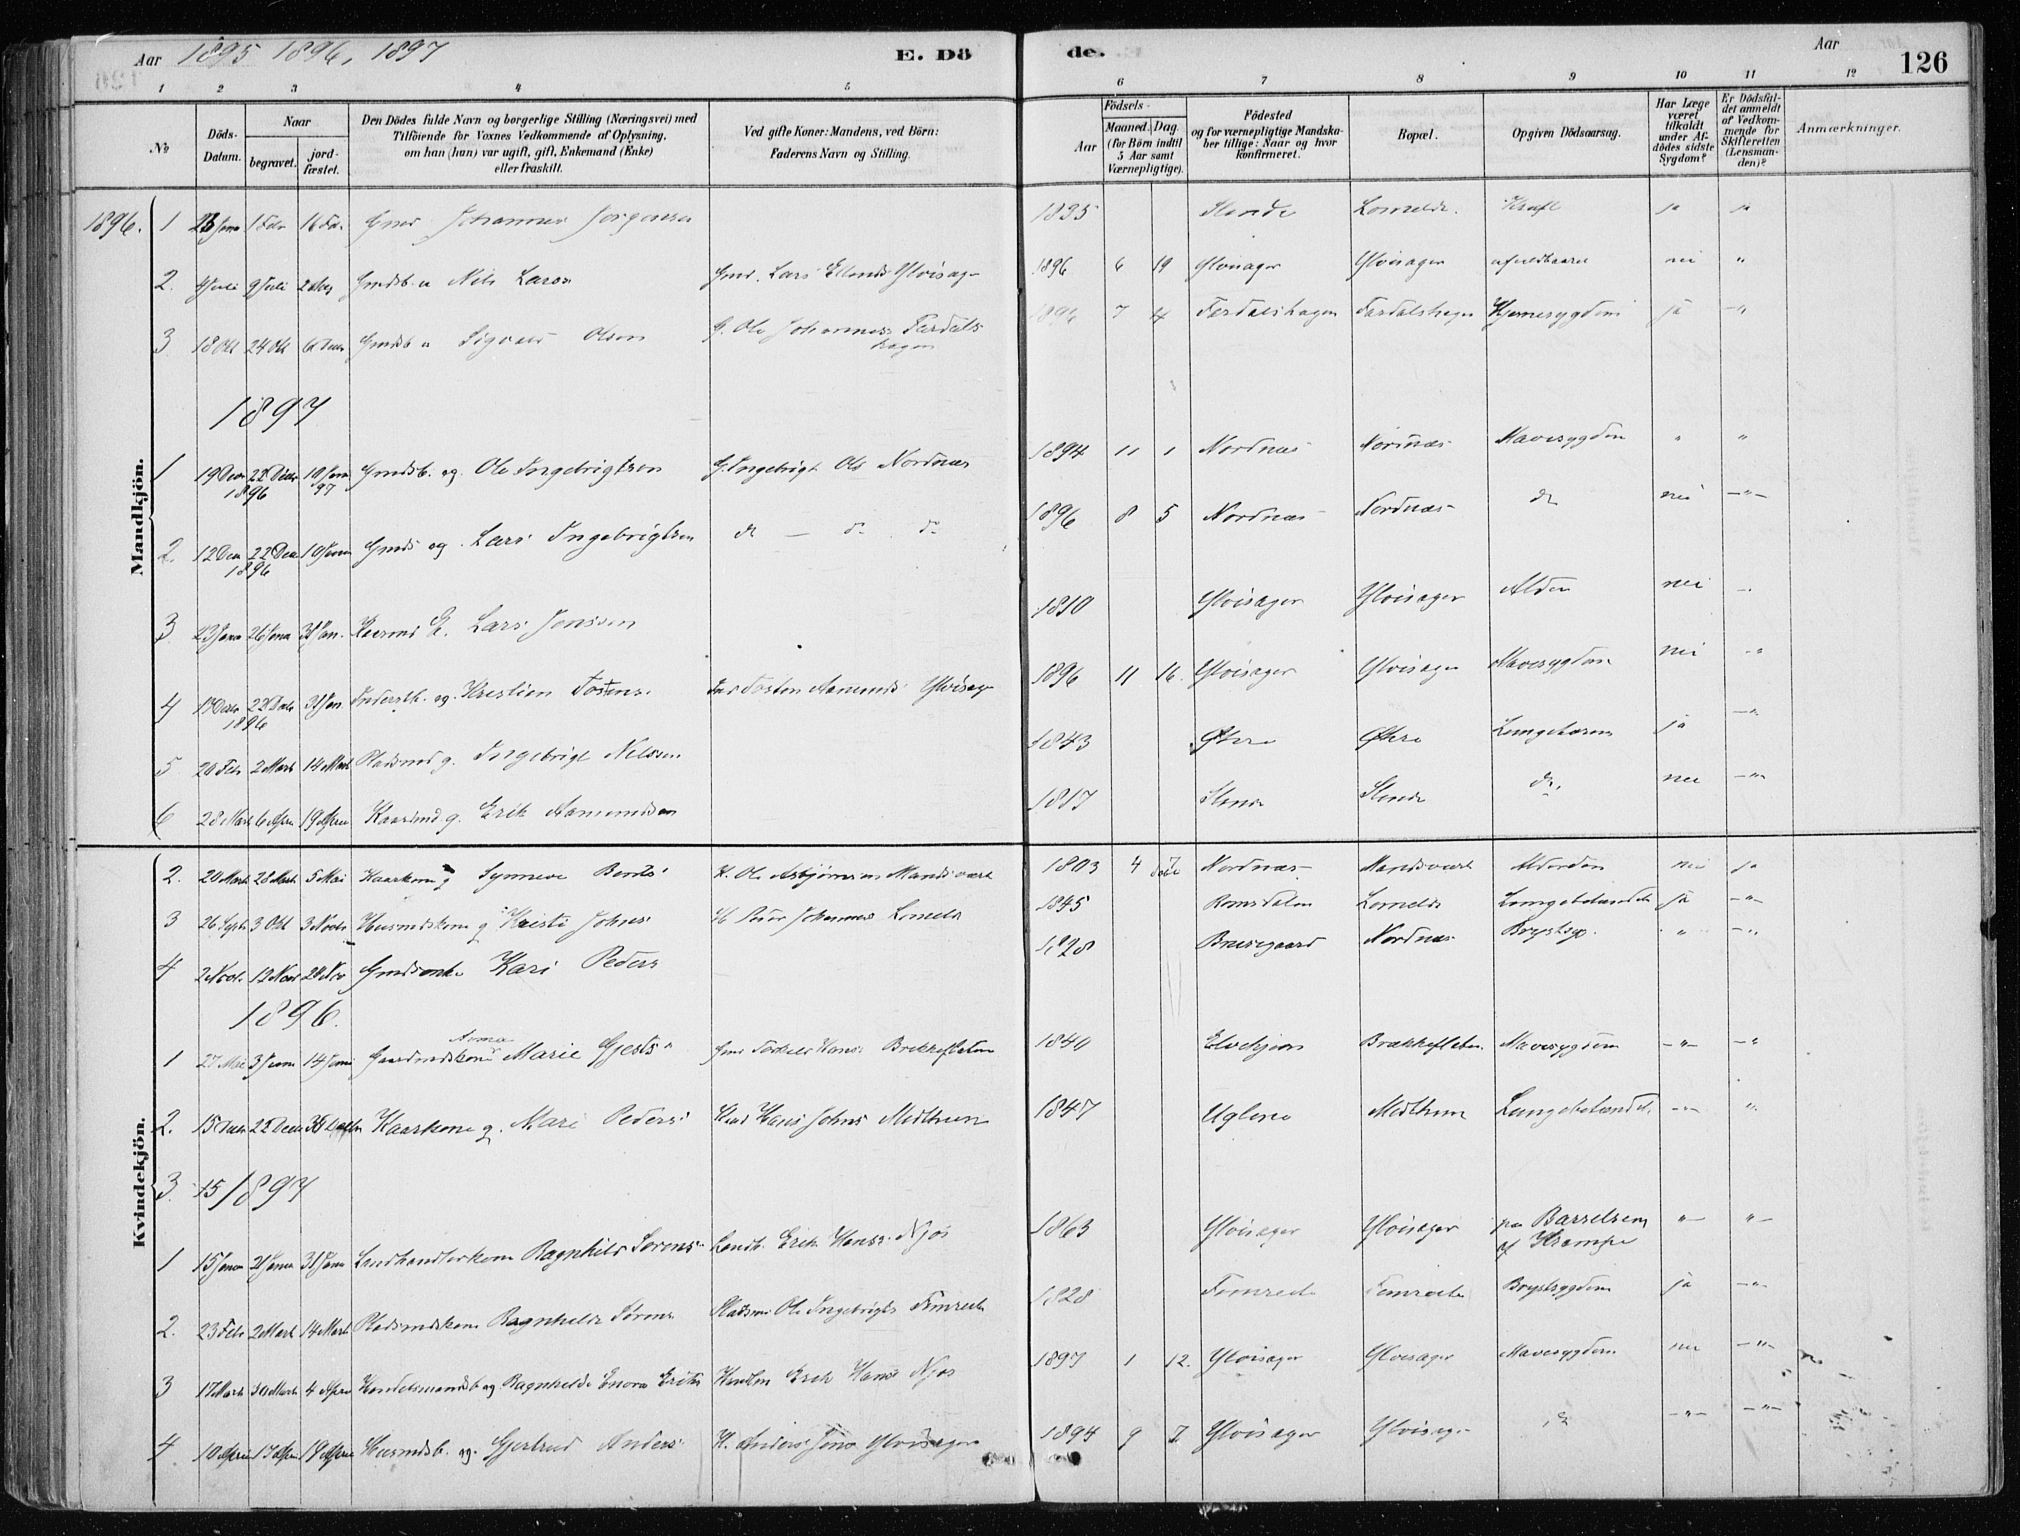 Aar 1895 1896, 1897
E. Dö
de.
Aar
126
1 2 3 4 5 6 7 8 9 10 11 12
No
Döds-Datum.
Naar
begravet.
jord-fæstet.
Den Dödes fulde Navn og borgerlige Stilling (Næringsvei) med
Tilföiende for Voxnes Vedkommende af Oplysning,
om han (hun) var ugift, gift, Enkemand (Enke)
eller fraskilt.
Ved gifte Koner: Mandens, ved Börn:
Faderens Navn og Stilling.
Födsels-
Aar
Maaned. Dag.
(for Börn indtil
5 Aar samt
Værnepligtige).
Födested
og for værnepligtige Mandska-
ber tillige: Naar og hvor
konfirmeret.
Bopæl.
Opgiven Dödsaarsag.
Har Læge
været
tilkaldt
under Af-
dödes sidste
Sygdom?
Er Dödsfal-
det anmeldt
af Vedkom-
mende for
Skifteretten
(Lensman-
den)?
Anmærkninger.
Mandkjön.
1896. 1 1 Febr 16 Feb. Gmd Johannes 1835 Slinde Lomelde. Kræft ja ja
2. 4 Juli 9 Juli Gmdsb. u Nils Larss Gmd. Lars Ylvisager 1896 6 19 Ylvisager Ylvisager nei "
3 18 Okt 24 Okt 6 Decbr Gmdsb u Olsen G. Ole Johanness Fardals
hagen 1896 7 4 Fardalshagen Fardalshagen Hjernesygdom ja -"
1897
1 19 Decbr 22 Decbr 10 Janr
1896 97 Gmdsb. ug. Ole Ingebrigtsen G. Ingebrigt Ols Nordnæs 1894 11 1 Nordnæs Nordnæs Mavesygdom " "
2. 12 Decbr 22 Decbr 10 Janr
1896 Gmds ug. Lars Ingebrigtsen do — do do 1896 8 5 Nordnæs Nordnæs do nei -"-
3 23 Janr 26 Janr 31 Jan. Kaarmd E. Lars Jonssen 1810 Ylvisager Ylvisager Alder nei -.
4 22 Decbr 31 Jan
1896 ug. Kristian Tostens. Tosten Aamunds Ylvisager 1896 11 16. Ylvisager Ylvisager Mavesygdom nei -"
5 20 Feb 2 Mart 14 Mart Pladsmd g. Ingebrigt Nelssen 1843 Øhre Øhre ja -"
6 28 Mart 6 April 19 April Kaarmd g. Erik Aamundsen 1817 Slinde Slinde do. nei -"-
Kvindekjön.
2. 20 Mart 28 Mart 5 Mai Kaarkone g Synneve Bents. K. Ole Asbjørnssen Mandsvært 1803 4 Nordnæs Mandsvært nei ja
3 26 Septr 3 Okt 3 Novbr Husmdskone g Kristi Johns H Peder Johannes Lomelde 1845 Romsdalen Lomelde Lungebetændelse ja -"-
4 2 Novbr. 12 Novbr 28 Nov Gmdsenke Kari Peders 1828 Nordnæs Brystsyg. " -"-
1896.
1 27 Mai 3 Juni 14 Juni Gaardmdskone Anna Marie Gjests. Gmd Torkels Hans. Brekkefløten 1840 Brækkefløten Mavesygdom -"- -"
2. 15 Decbr 22 Decbr Kaarkone g. Mari Peders. Kmd Hans Johns Midthun 1847 Uglene Midthun Lungebetændelse -"- ".
3. 15/1897
1 15 Janr 21 Janr 31 Janr Landhandlerkone Ragnhild Sørens. Landh. Erik Hans. Njøs 1863 Ylvisager Ylvisager paa Barselseng
af Krampe "- "-
2. 23 Feb 2 Mart 14 Mart Pladsmdskone Ragnhilde Sørens Pladsmd Ole Ingebrigts Fimreite 1828 Fimreite Fimreite Brystsygdom ja -"-
3 17 Mart 30 Mart 4 April Handelsmandsb ug. Ragnhilde Enora Eriks Handlm Erik Hans Njøs 1897 1 12. Ylvisager Ylvisager Mavesygdom nei -"-
4 10 April 17 April 19 April Husmdsb. ug. Gjertrud Anders. H. Anders Jens Ylvisager 1894 9 7 Ylvisager Ylvisager do -"- -"-